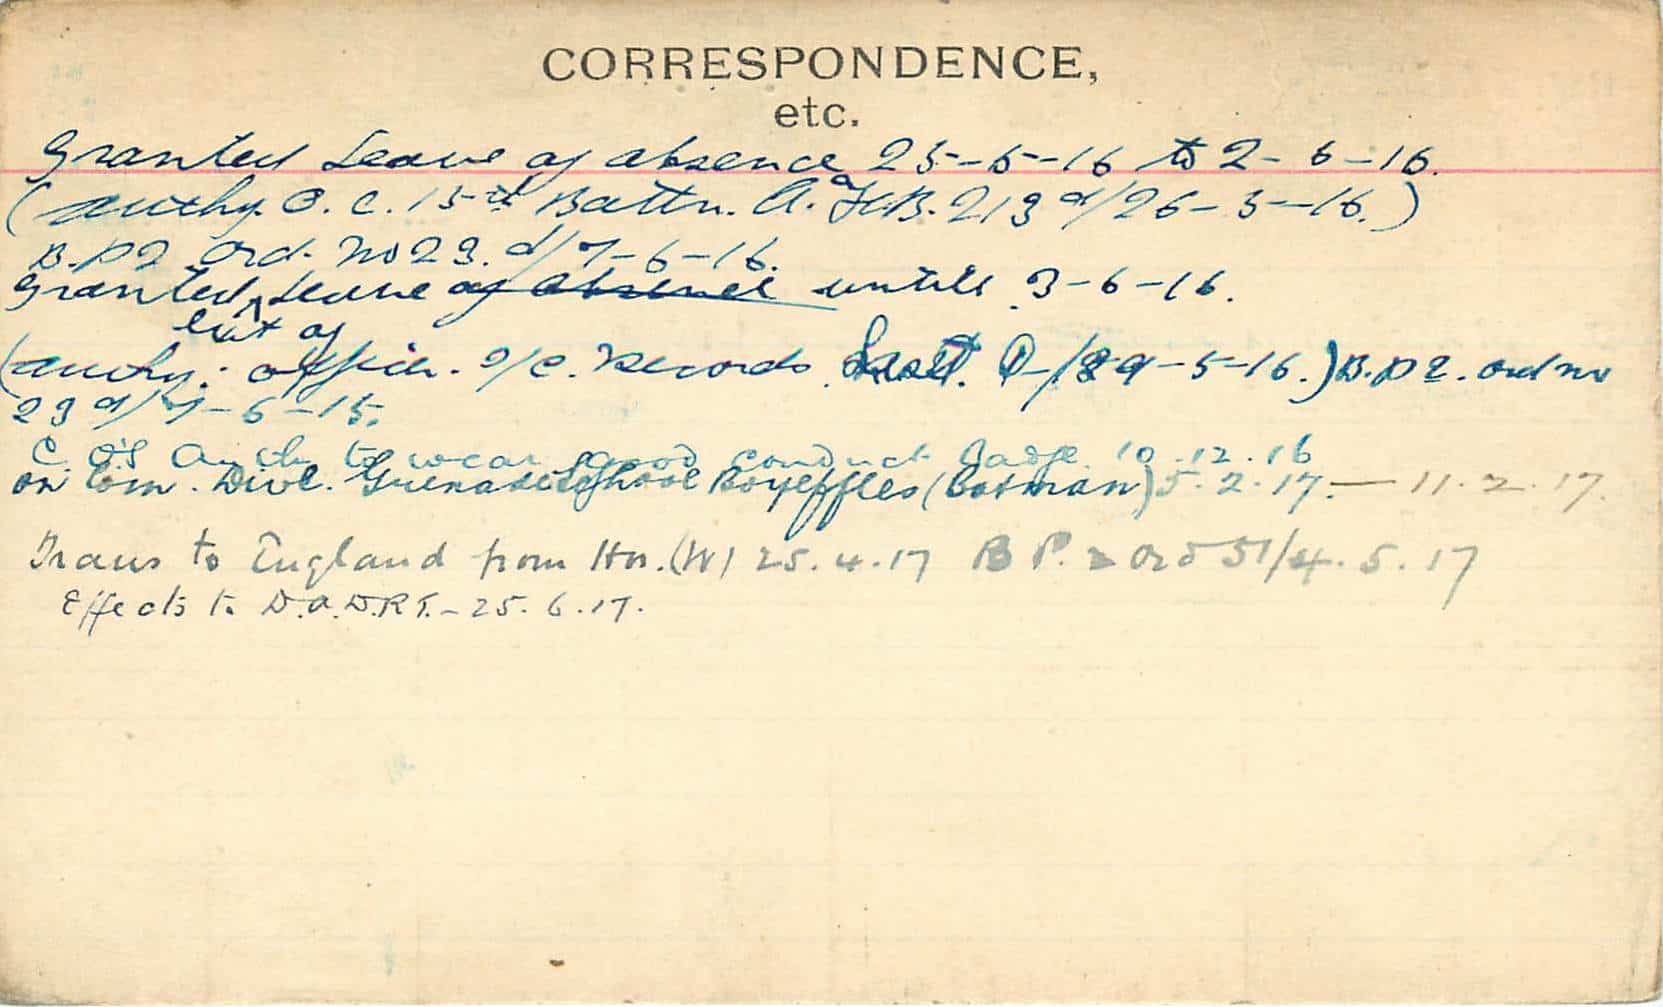 CORRESPONDENCE,
etc.
Granted Leave of absence 25-5-16 to 2-6-16.
(authy. O.C. 15th Battn. A.F.B. 213 d/26-5-16.)
B.P2 Ord. No 23. d/7-6-16.
Granted ^ Leave of absence until 3-6-16.
ext of
(authy: offich. i/c. Records. D/29-5-16.) B.P2. Ord no
23 d/7-6-15.
C.O's Auth to wear good conduct Badge. 10.12.16
on Com. Divl. Grenade School Boyeffles (Batman) 5.2.17. — 11.2.17.
Trans to England from Hos. (W) 25.4.17 B P. 2 Ord 51/4.5.17
Effects to D.A.D.R.T. - 25.6.17.